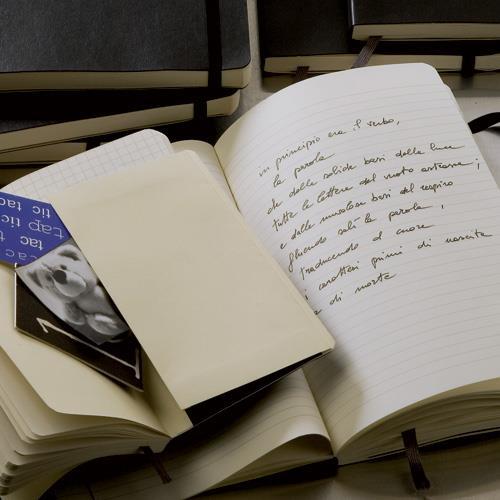 in principio era il verbo,
la parola
che dalle calide basi della luna
tutte le lettere del moto astrasse;
e dalle muscolose basi del respiro
salì la parola,
traducendo al cuore
caratteri primi di nascita
e di morte
tic tac
tap tic
tac